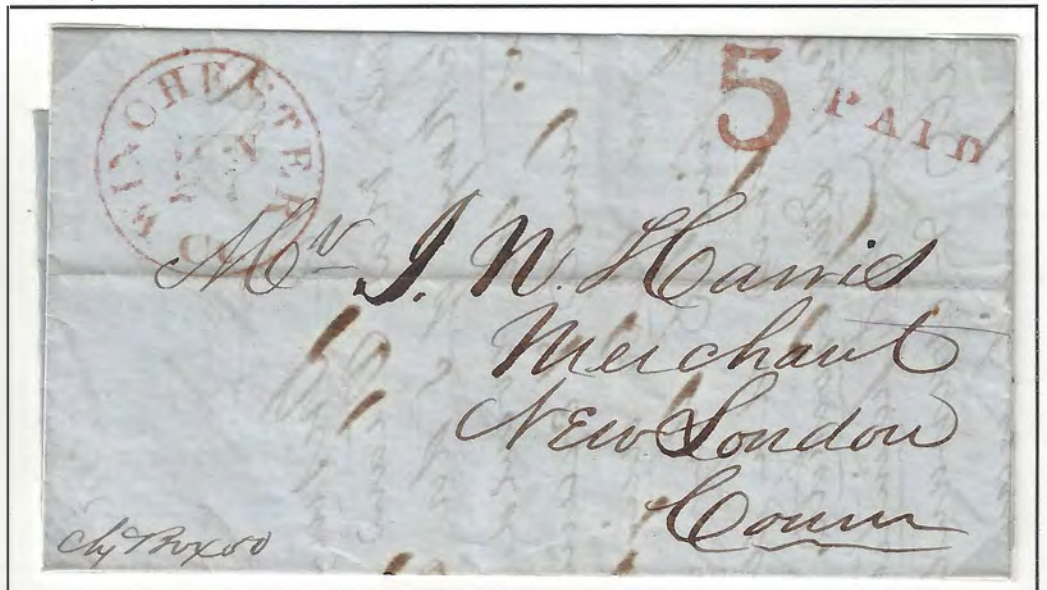 WINCHESTER
JUN
Ct.
5 PAID
Mr J. N. Harris
Merchant
New London
Conn
Chg Box 50